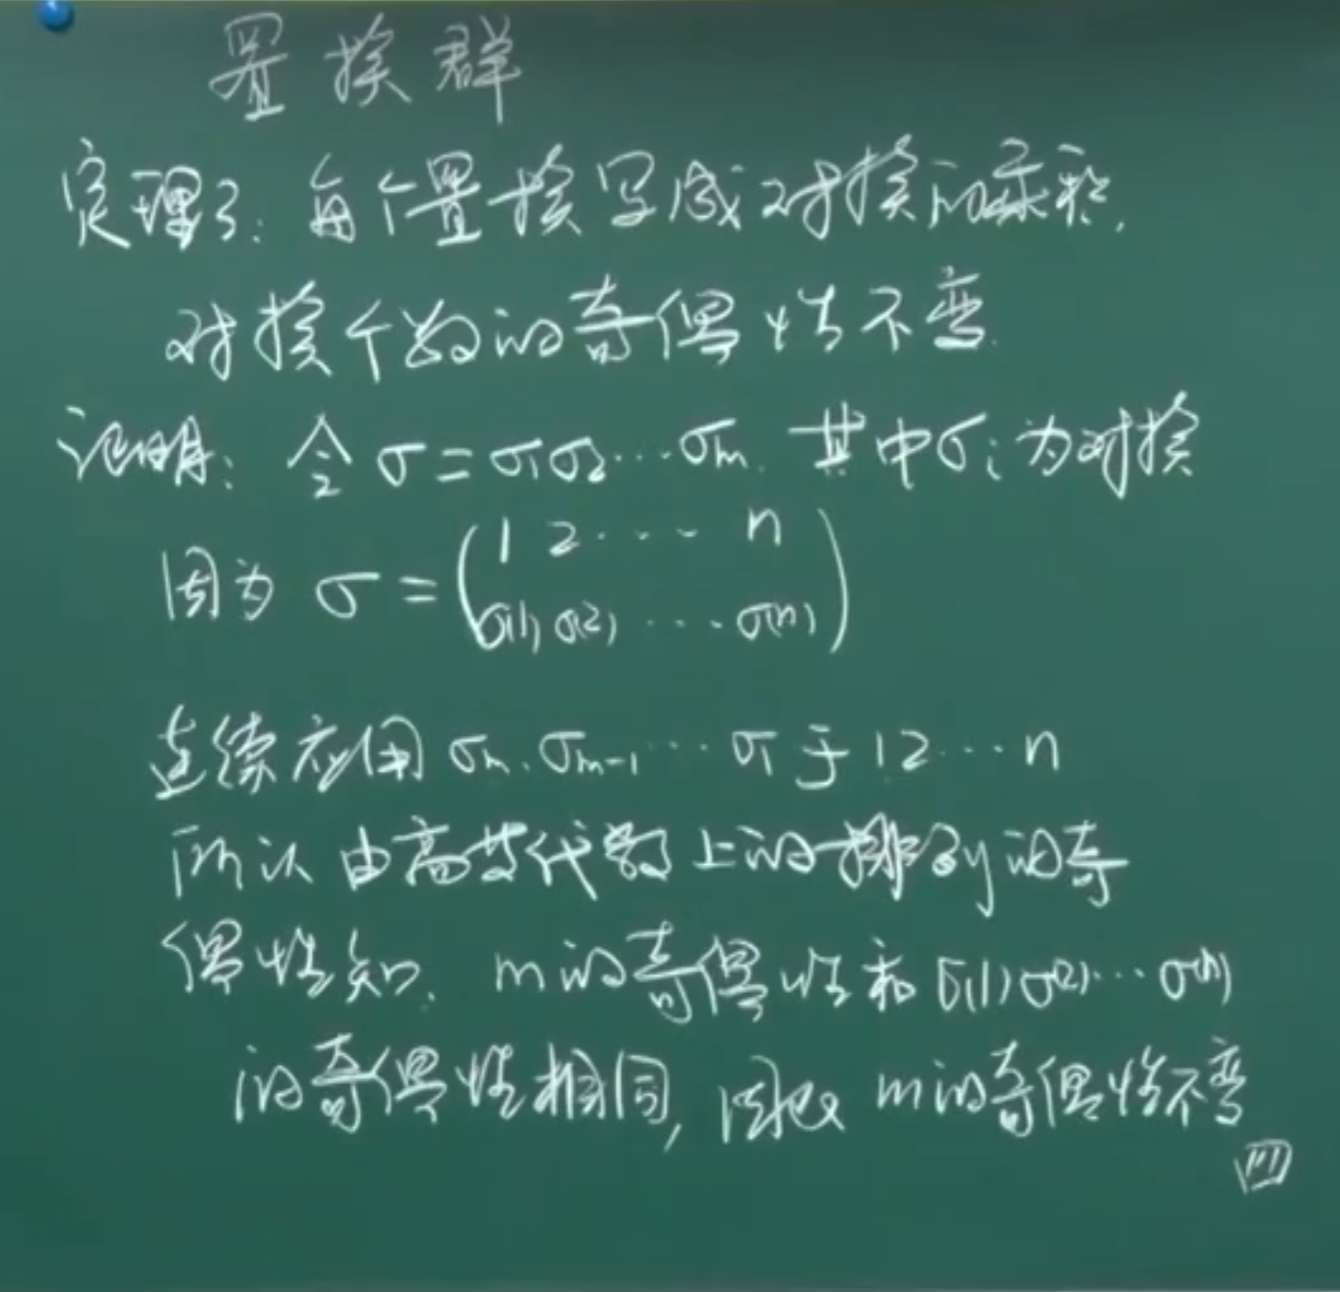 置换群
定理3: 每个置换写成对换的乘积,
对换个数的奇偶性不变.
证明: 令 σ=σ₁σ₂⋯σₘ. 其中σᵢ为对换
因为 σ = ( 1 2 ⋯ n
σ(1) σ(2) ⋯ σ(n) )
连续应用 σₘ, σₘ₋₁ ⋯ σ₁ 于 12⋯n
所以由高等代数上的排列的奇
偶性知, m的奇偶性和σ(1)σ(2)⋯σ(n)
的奇偶性相同, 因此 m的奇偶性不变